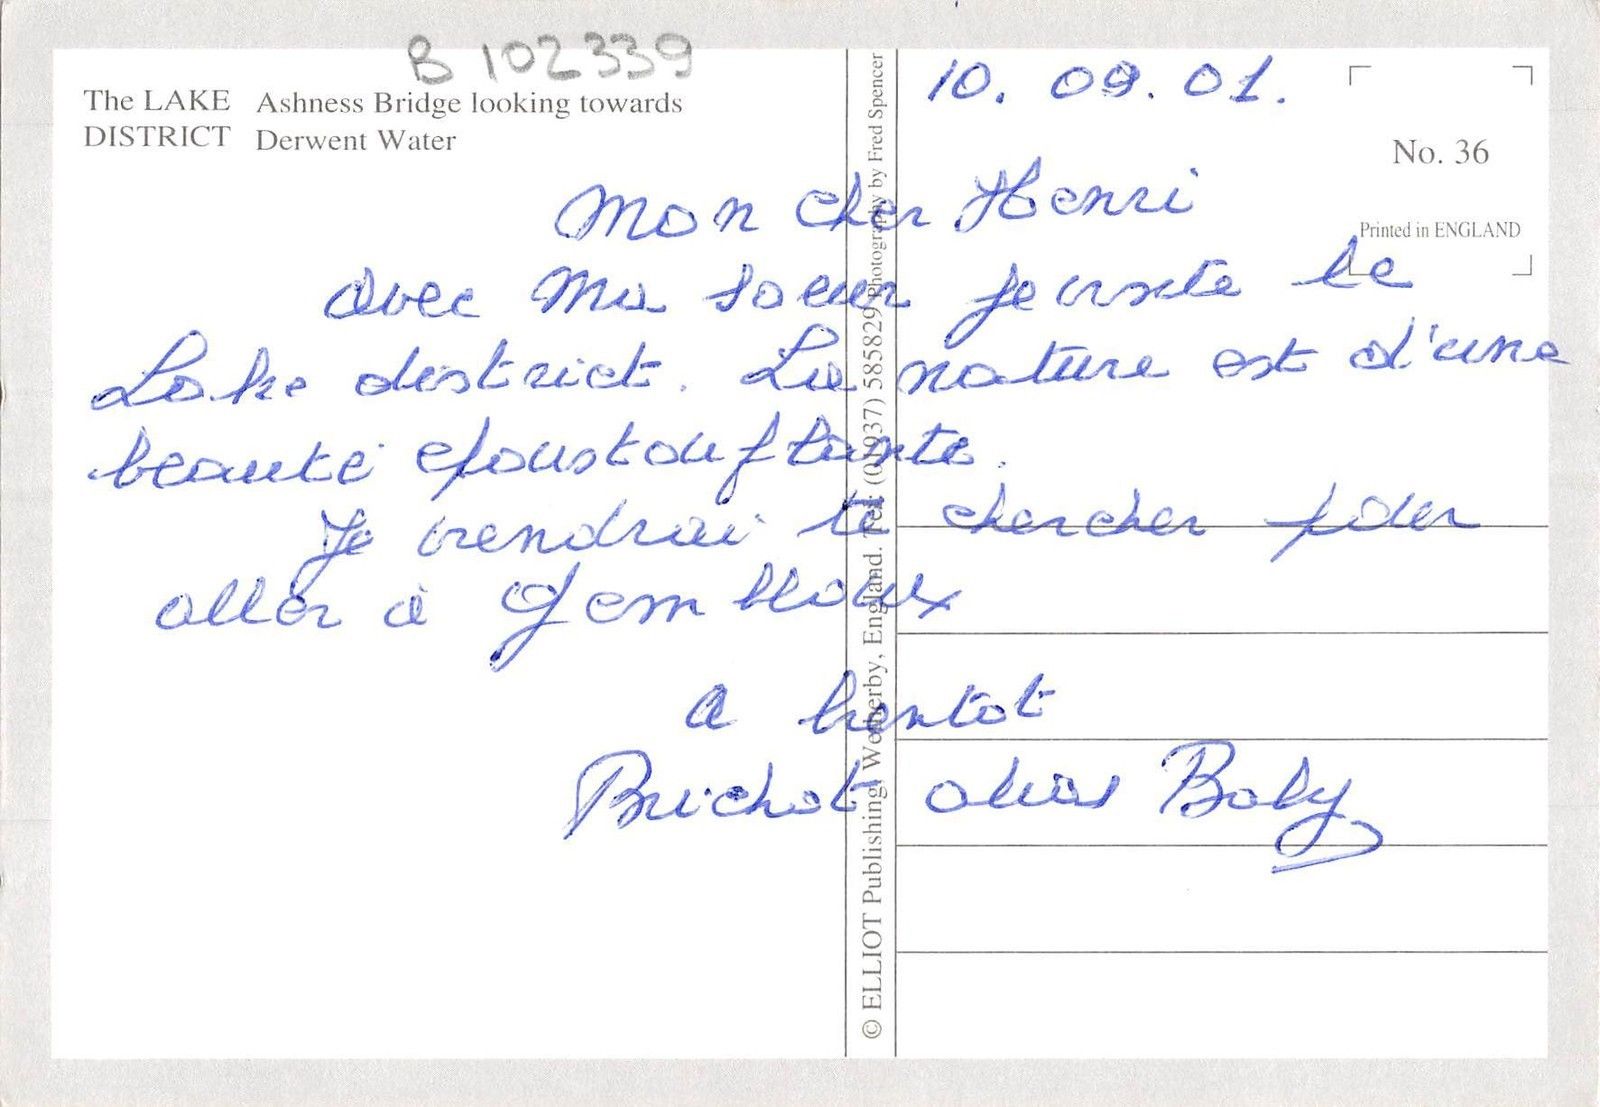 B 102339
The LAKE DISTRICT
Ashness Bridge looking towards
Derwent Water
10. 09. 01.
No. 36
Printed in ENGLAND
Mon cher Henri
avec Ma soeur je visite le
Lake district. La nature est d'une
beauté epoustouflante.
Je viendrai te chercher pour
aller à Gembloux
A bientot
Buchot alias Baby
© ELLIOT Publishing, Wetherby, England. Tel: (01937) 585829 Photography by Fred Spencer